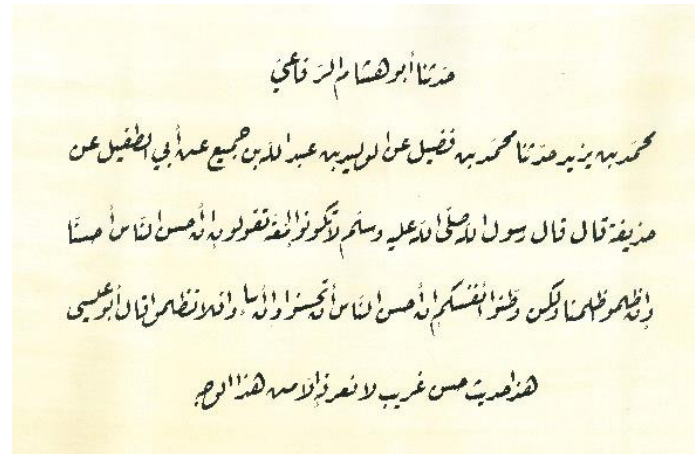 حدثنا أبو هشام الرفاعي
محمد بن يزيد حدثنا محمد بن فضيل عن الوليد بن عبد الله بن جميع عن أبي الطفيل عن
حذيفة قال قال رسول الله صلى الله عليه وسلم لا تكونوا إمعة تقولون إن أحسن الناس أحسنا
وإن ظلموا ظلمنا ولكن وطنوا أنفسكم إن أحسن الناس أن تحسنوا وإن أساءوا فلا تظلموا قال أبو عيسى
هذا حديث حسن غريب لا نعرفه إلا من هذا الوجه